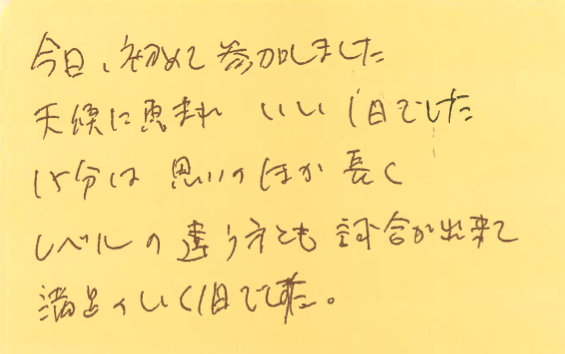 今日、初めて参加しました
天候に恵まれ いい1日でした
15分は 思いのほか 長く
レベルの違う方とも 試合が出来て
満足のいく1日でした。